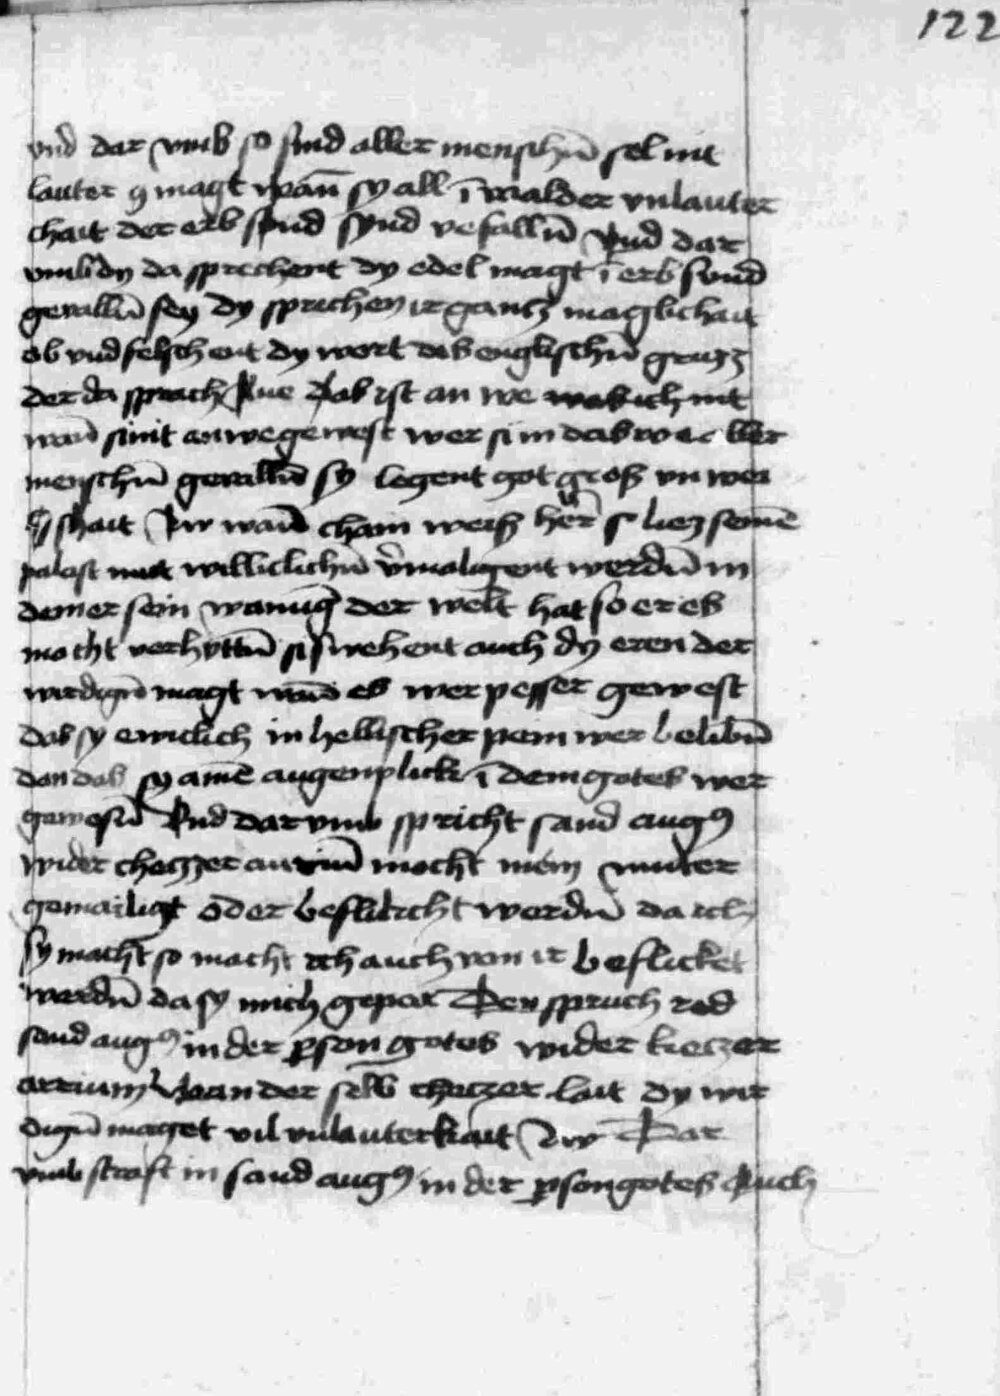 122
vnd dar vmb so sind aller menschn̄ sel nit
lauter gmagt wan̄ sy all ī walder vnlauter
chait der erb sund synd vefalln̄ Vnd dar
vmb dy da sprechent dy edel magt ī erb sund
geualln̄ sey dy sprechen ir gantz maglichait
ab vnd felschent dy wort des englischn̄ grutz
der da sprach Aue das ist an we was ich nit
wan̄ si nit an we gewest wer si in das we aller
menschn̄ geualln̄ sy legent got gros vn wei
shait zw wan̄ chain weis her̄ liez seinē
palast nit williclichn̄ v̄maligent werdn̄ in
dem er sein wanūg der welt hat so er es
mocht verhyttn̄ si swehent auch dy eren der
wirdign̄ magt wan̄ es wer pesser gewest
das sy ewiclich in hellischer pein wer belibn̄
dan das sy ainē augenplick ī dem gotes wer
gewesn̄ Vnd dar vmb spricht sand augꝰ
wider checzer arrium mocht mein muter
gemailigt oder befleckt werdn̄ da ich
sy macht so macht ich auch von ir beflicket
werdn̄ da sy mich gepar Den spruch red
sand augꝰ in der p̱son gotes wider keczer
arrium Wan der selb checzer lait dy wir
dign̄ maget vil vnlauterkait zw Dar
vmb straft in sand augꝰ in der p̱son gotes Auch